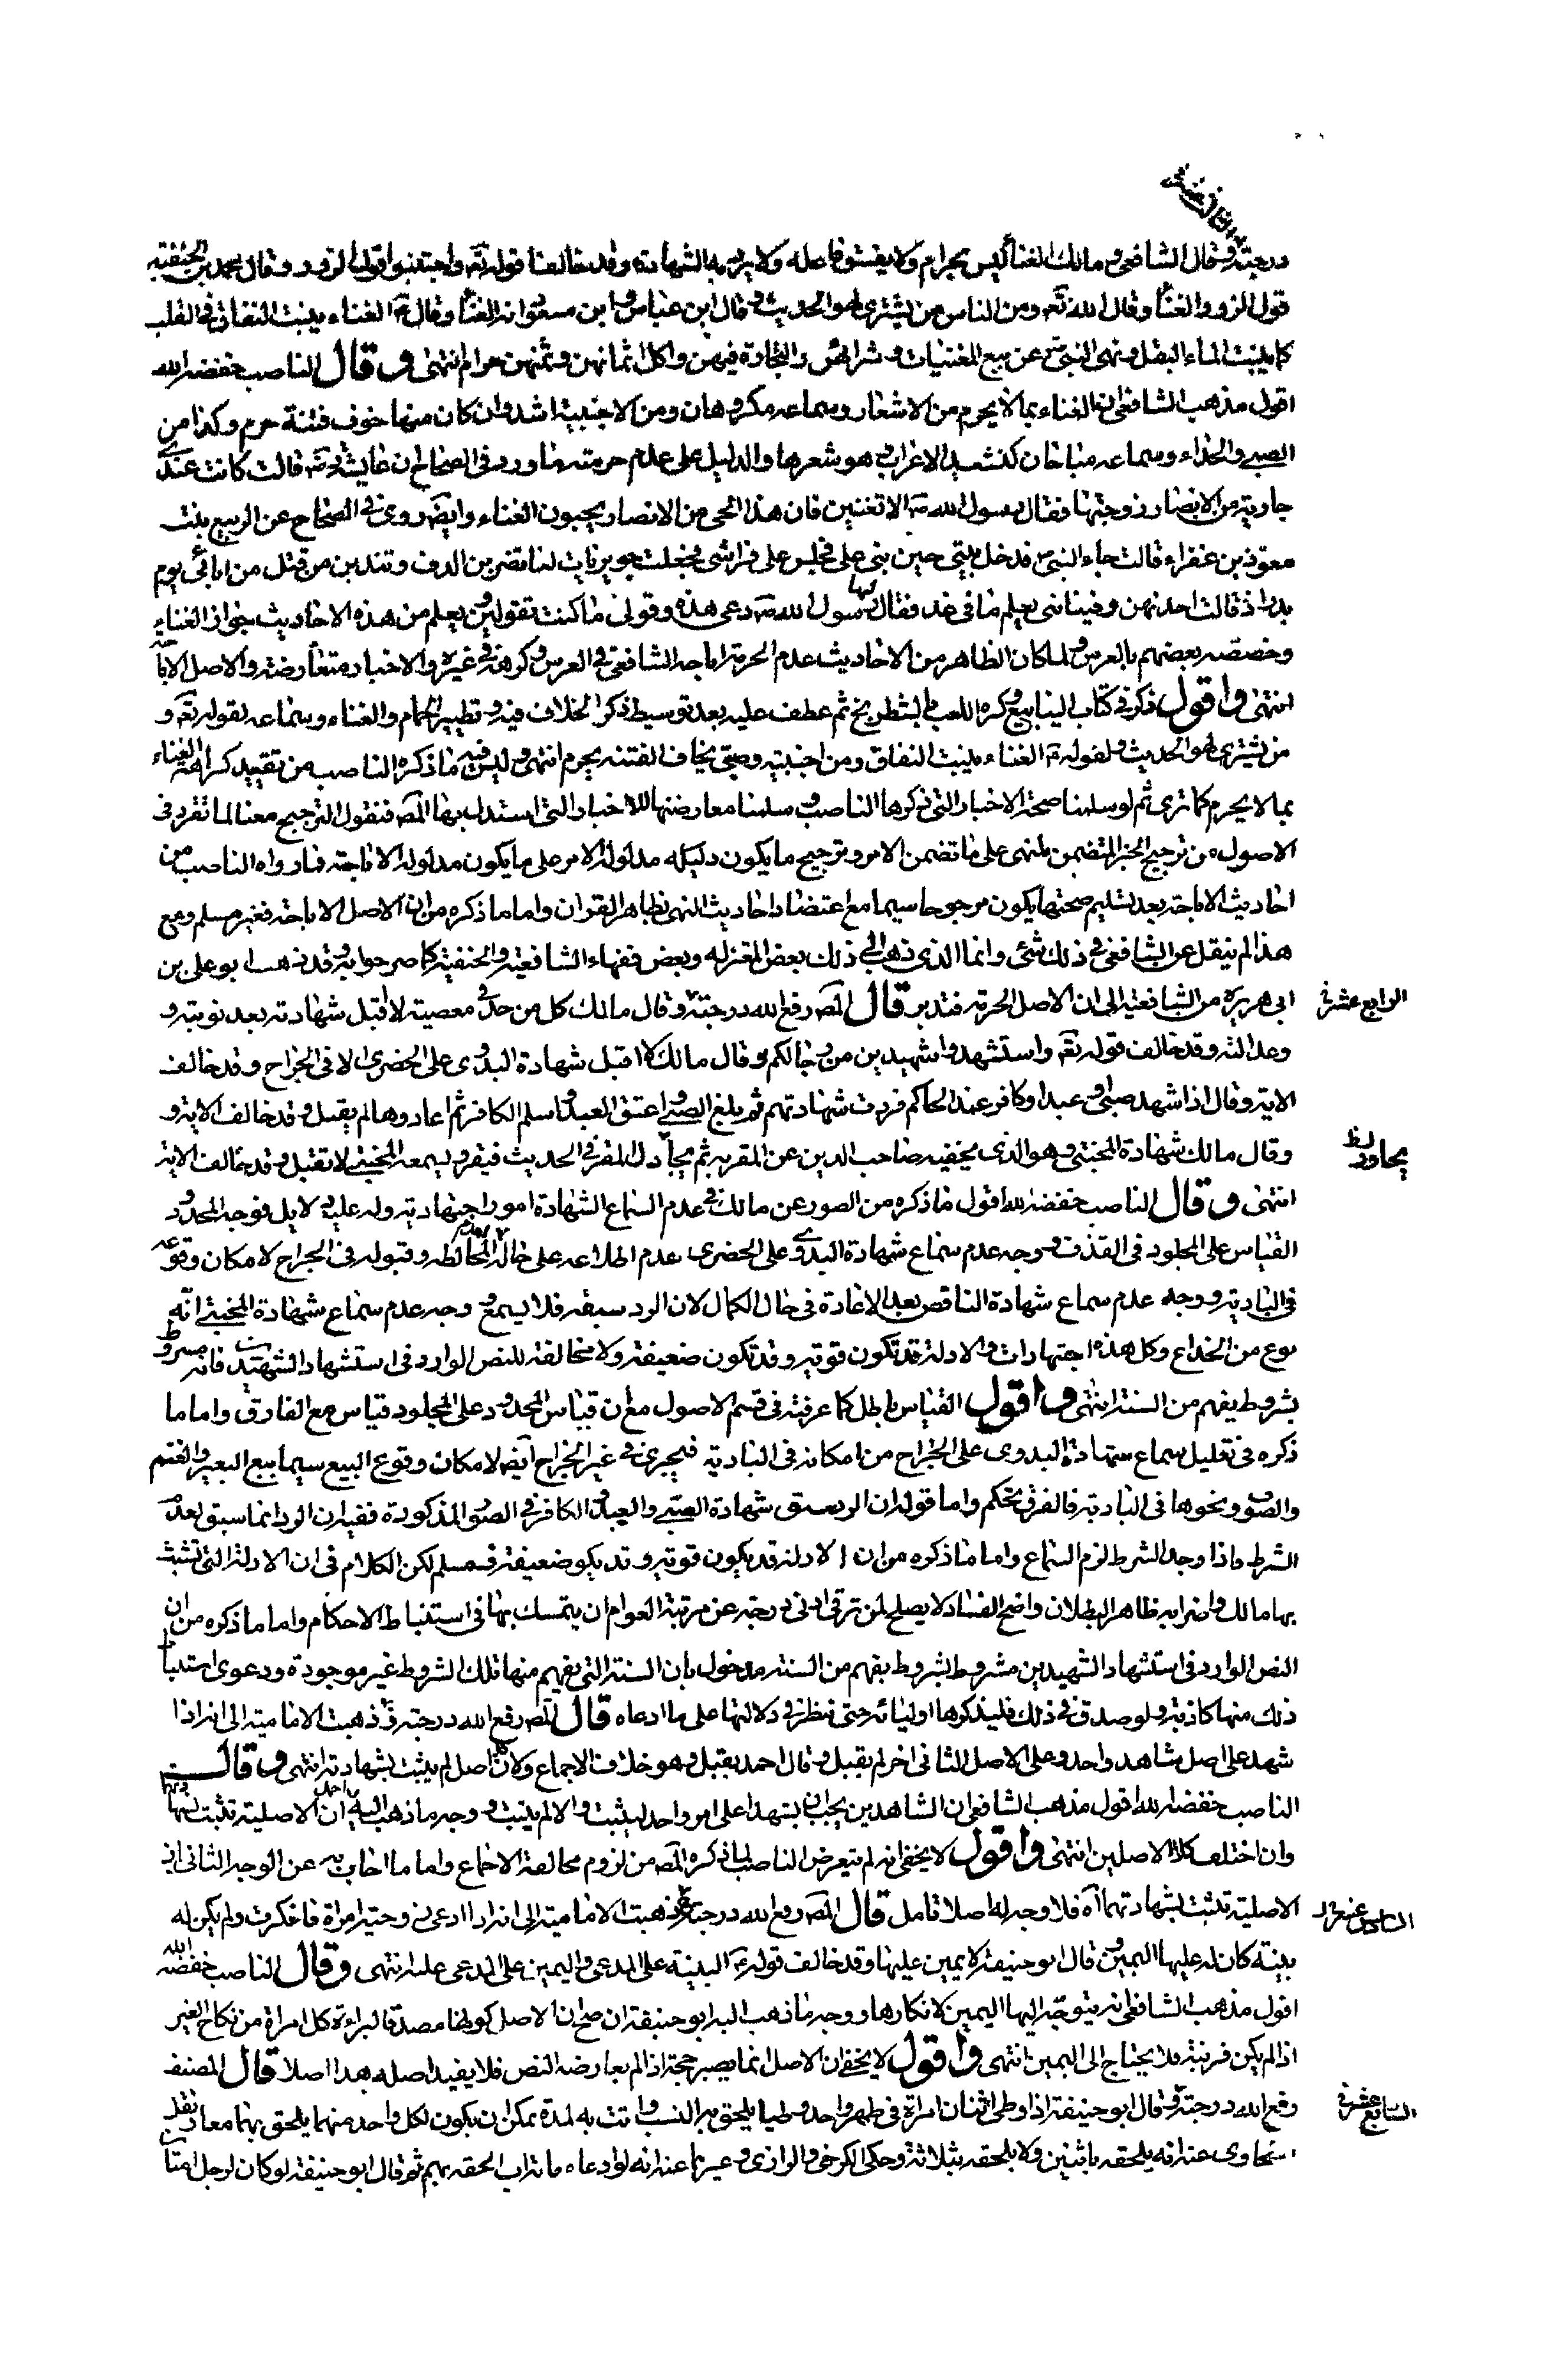 الثالث عشر
درجته وقال الشافعي ومالك الغناء ليس بحرام ولا يفسق فاعله ولا يرد به الشهادة وقد خالفا قوله تع واجتنبوا قول الزور وقال محمد بن الحنفية
قول الزور الغناء وقال الله تع ومن الناس من يشترى لهو الحديث وقال ابن عباس وابن مسعود انه الغناء وقال ص الغناء ينبت النفاق في القلب
كما ينبت الماء البقل ونهى النبي ص عن بيع المغنيات وشرائهن والتجارة فيهن واكل اثمانهن وثمنهن حرام انتهى وقال الناصب خفضه الله
اقول مذهب الشافعي ان الغناء بما لا يحرم من الاشعار وسماعه مكروهان ومن الاجنبية اشد وان كان منها خوف فتنة حرم وكذا من
الصبي والحداء وسماعه مباحان كنشيد الاعراب وهو شعرها والدليل على عدم حرمته ما ورد في الصحاح ان عايشة رض قالت كانت عندي
جارية من الانصار زوجتها فقال رسول الله ص الا تغنين فان هذا الحي من الانصار يحبون الغناء وايض روى في الصحاح عن الربيع بنت
معوذ بن عفراء قالت جاء النبي ص فدخل بيتي حين بنى علي فجلس على فراشي فجعلت جويريات لنا تضربن الدف وتندبن من قتل من ابائي يوم
بدر اذ قالت احديهن وفينا نبي يعلم ما في غد فقال لها رسول الله ص دعى هذه وقولى ما كنت تقولين ويعلم من هذه الاحاديث جواز الغناء
وخصصه بعضهم بالعرس ولما كان الظاهر من الاحاديث عدم الحرمة اباحه الشافعي في العرس وكرهه في غيره والاخبار متعارضة والاصل الاباحة
انتهى واقول ذكر في كتاب الينابيع وكره اللعب بالشطرنج ثم عطف عليه بعد توسيط ذكر الخلاف فيه وتطيير الحمام والغناء وسماعه لقوله تع و
من يشترى لهو الحديث ولقوله ص الغناء ينبت النفاق ومن اجنبية وصبي يخاف الفتنة يحرم انتهى وليس فيه ما ذكره الناصب من تقييد كراهة الغناء
بما لا يحرم كما ترى ثم لو سلمنا صحة الاخبار التي ذكرها الناصب وسلمنا معارضتها للاخبار التي استدل بها المص فنقول الترجيح معنا لما تقرر في
الاصول من ترجيح الخبر المتضمن للنهى على ما تضمن الامر وترجيح ما يكون دليله مدلوله الامر على ما يكون مدلوله الاباحة فما رواه الناصب من
احاديث الاباحة بعد تسليم صحتها يكون مرجوحا سيما مع اعتضاد احاديث النهى بظاهر القران واما ما ذكره من ان الاصل الاباحة فغير مسلم ومع
هذا لم ينقل عن الشافعي في ذلك شئ وانما الذي ذهب الى ذلك بعض المعتزلة وبعض فقهاء الشافعية والحنفية كما صرحوا به وقد ذهب ابو علي بن
ابي هريرة من الشافعية الى ان الاصل الحرمة فتدبر قال المص رفع الله درجته وقال مالك كل من حد في معصية لا اقبل شهادته بعد توبته و
الرابع عشر
عدالته وقد خالف قوله تع واستشهدوا شهيدين من رجالكم وقال مالك لا اقبل شهادة البدوى على الحضرى الا في الجراح وقد خالف
الاية وقال اذا شهد صبي او عبد او كافر عند الحاكم فردت شهادتهم ثم بلغ الصبي واعتق العبد واسلم الكافر ثم اعادوها لم يقبل وقد خالف الاية و
وقال مالك شهادة المختبي وهو الذي يخفيه صاحب الدين عن المقر به ثم يجادل المقر في الحديث فيقر ويسمعه المختبي لا تقبل وقد خالف الاية
يحاور ظ
انتهى وقال الناصب خفضه الله اقول ما ذكره من الصور عن مالك في عدم السماع الشهادة امور اجتهادية وله عليه دلايل فوجه المحدود
القياس على المجلود في القذف ووجه عدم سماع شهادة البدوي على الحضرى عدم اطلاعه على حاله المخالطه وقبوله في الجراح لامكان وقوعه
في البادية ووجه عدم سماع شهادة الناقص بعد الاعادة في حال الكمال لان الرد سبقه فلا يسمع ووجه عدم سماع شهادة المختبي انه
نوع من الخداع وكل هذه اجتهادات والادلة قد تكون قوية وقد تكون ضعيفة ولا مخالفة للنص الوارد في استشهاد الشهيدين فانه مشروط
بشروط يفهم من السنة انتهى واقول القياس باطل كما عرفته في قسم الاصول مع ان قياس المحدود على المجلود قياس مع الفارق واما ما
ذكره في تعليل سماع شهادة البدوى على الجراح من امكانه في البادية فيجرى في غير الجراح ايض لامكان وقوع البيع سيما بيع البعير والغنم
والصوف ونحوها في البادية فالفرق تحكم واما قوله ان الرد سبق شهادة الصبي والعبد والكافر في الصور المذكورة ففيه ان الرد انما سبق لعدم
الشرط فاذا وجد الشرط لزم السماع واما ما ذكره من ان الادلة قد يكون قوية وقد يكون ضعيفة فمسلم لكن الكلام في ان الادلة التي تشبث
بها مالك واضرابه ظاهر البطلان واضح الفساد لا يصلح لمن ترقى ادنى درجة عن مرتبة العوام ان يتمسك بها في استنباط الاحكام واما ما ذكره من ان
النص الوارد في استشهاد الشهيدين مشروط بشروط يفهم من السنة مدخول بان السنة التي يفهم منها تلك الشروط غير موجودة ودعوى استنباط
ذلك منها كاذبة ولو صدق في ذلك فليذكرها اوليائه حتى ننظر في دلالتها على ما ادعاه قال المص رفع الله درجته ذهبت الامامية الى انه اذا
شهد على اصل شاهد واحد وعلى الاصل الثاني اخر لم يقبل وقال احمد يقبل وهو خلاف الاجماع ولان الاصل لم يثبت بشهادته انتهى وقال
الناصب خفضه الله اقول مذهب الشافعي ان الشاهدين يجب ان يشهدا على امر واحد ليثبت والا لم يثبت ووجه ما ذهب اليه احمد ان الاصلية تثبت بشهادتهما
وان اختلف كلا الاصلين انتهى واقول لا يخفى انه لم يتعرض الناصب لما ذكره المص من لزوم مخالفة الاجماع واما ما اجاب به عن الوجه الثاني اذ
الاصلية تثبت بشهادتهما اه فلا وجه له اصلا تامل قال المص رفع الله درجته ذهبت الامامية الى انه اذا ادعى زوجية امراة فانكرت ولم يكن له
السادس عشر
بينة كان له عليها اليمين وقال ابو حنيفة لا يمين عليها وقد خالف قوله ص البينة على المدعى واليمين على المدعى عليه انتهى وقال الناصب خفضه الله
اقول مذهب الشافعي انه يتوجه اليها اليمين لانكارها ووجه ما ذهب اليه ابو حنيفة ان صح ان الاصل كونها مصدقا لبراءة كل امراة من نكاح الغير
اذا لم يكن قرينة فلا يحتاج الى اليمين انتهى واقول لا يخفى ان الاصل انما يصير حجة اذا لم يعارضه النص فلا يفيد اصله هذا اصلا قال المصنف
رفع الله درجته وقال ابو حنيفة اذا وطى اثنان امراة في طهر واحد وطيا يلحق به النسب واتت به لمدة يمكن ان يكون لكل واحد منهما يلحق بهما معا ونقل
السابع عشر
الطحاوى عنه انه يلحقه باثنين ولا يلحقه بثلاثة وحكى الكرخي والرازى وغيرهما عنه انه لو ادعاه ماية اب الحقه بهم ثم قال ابو حنيفة لو كان لرجل امتان